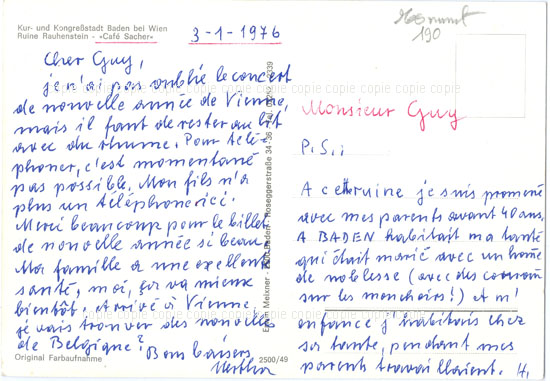 Kur- und Kongreßstadt Baden bei Wien
Ruine Rauhenstein - »Café Sacher«
3-1-1976
Cher Guy,
je n'ai pas oublié le concert
de nouvelle année de Vienne,
mais il faut de rester au lit
avec du rhume. Pour télé-
phoner, c'est momentané
pas possible. Mon fils n'a
plus un téléphone ici.
Merci beaucoup pour le billet
de nouvelle année si beau.
Ma famille a une excellent
santé, moi, ça va mieux
bientôt. arrivé à Vienne.
je vais trouver des nouvelle
de Belgique? Bons baisers
Hertha
Original Farbaufnahme
2500/49
190
Monsieur Guy
P.S.:
A cette ruine je suis promené
avec mes parents avant 40 ans.
A BADEN habitait ma tante
qui était marié avec un home
de noblesse (avec des couronn
sur les mouchoirs!) A m'
enfance j'habitais chez
sa tante, pendant mes
parents travaillaient. H.
copie copie copie copie copie copie copie copie